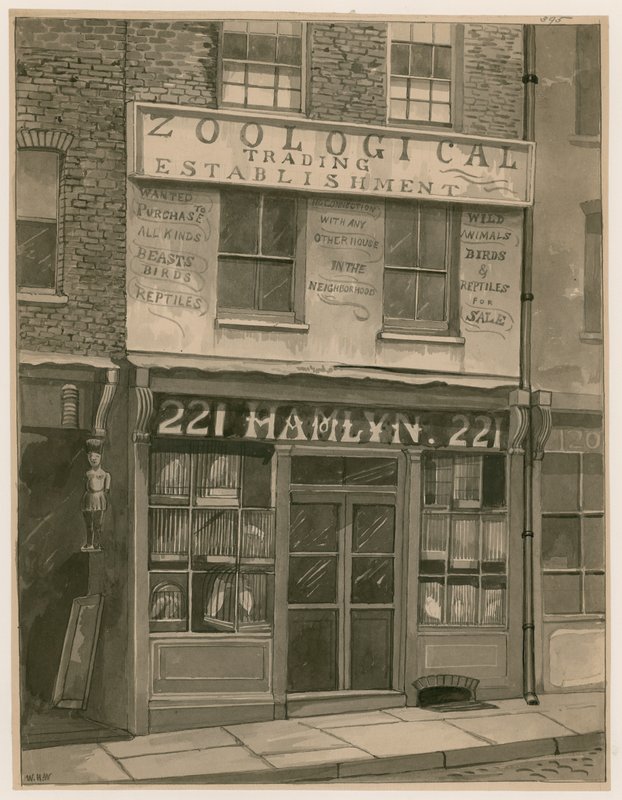 395
ZOOLOGICAL
TRADING
ESTABLISHMENT
WANTED
TO
PURCHASE
ALL KINDS
BEASTS
BIRDS
REPTILES
NO CONNECTION
WITH ANY
OTHER HOUSE
IN THE
NEIGHBORHOOD
WILD
ANIMALS
BIRDS
&
REPTILES
FOR
SALE
221 HAMLYN. 221
120